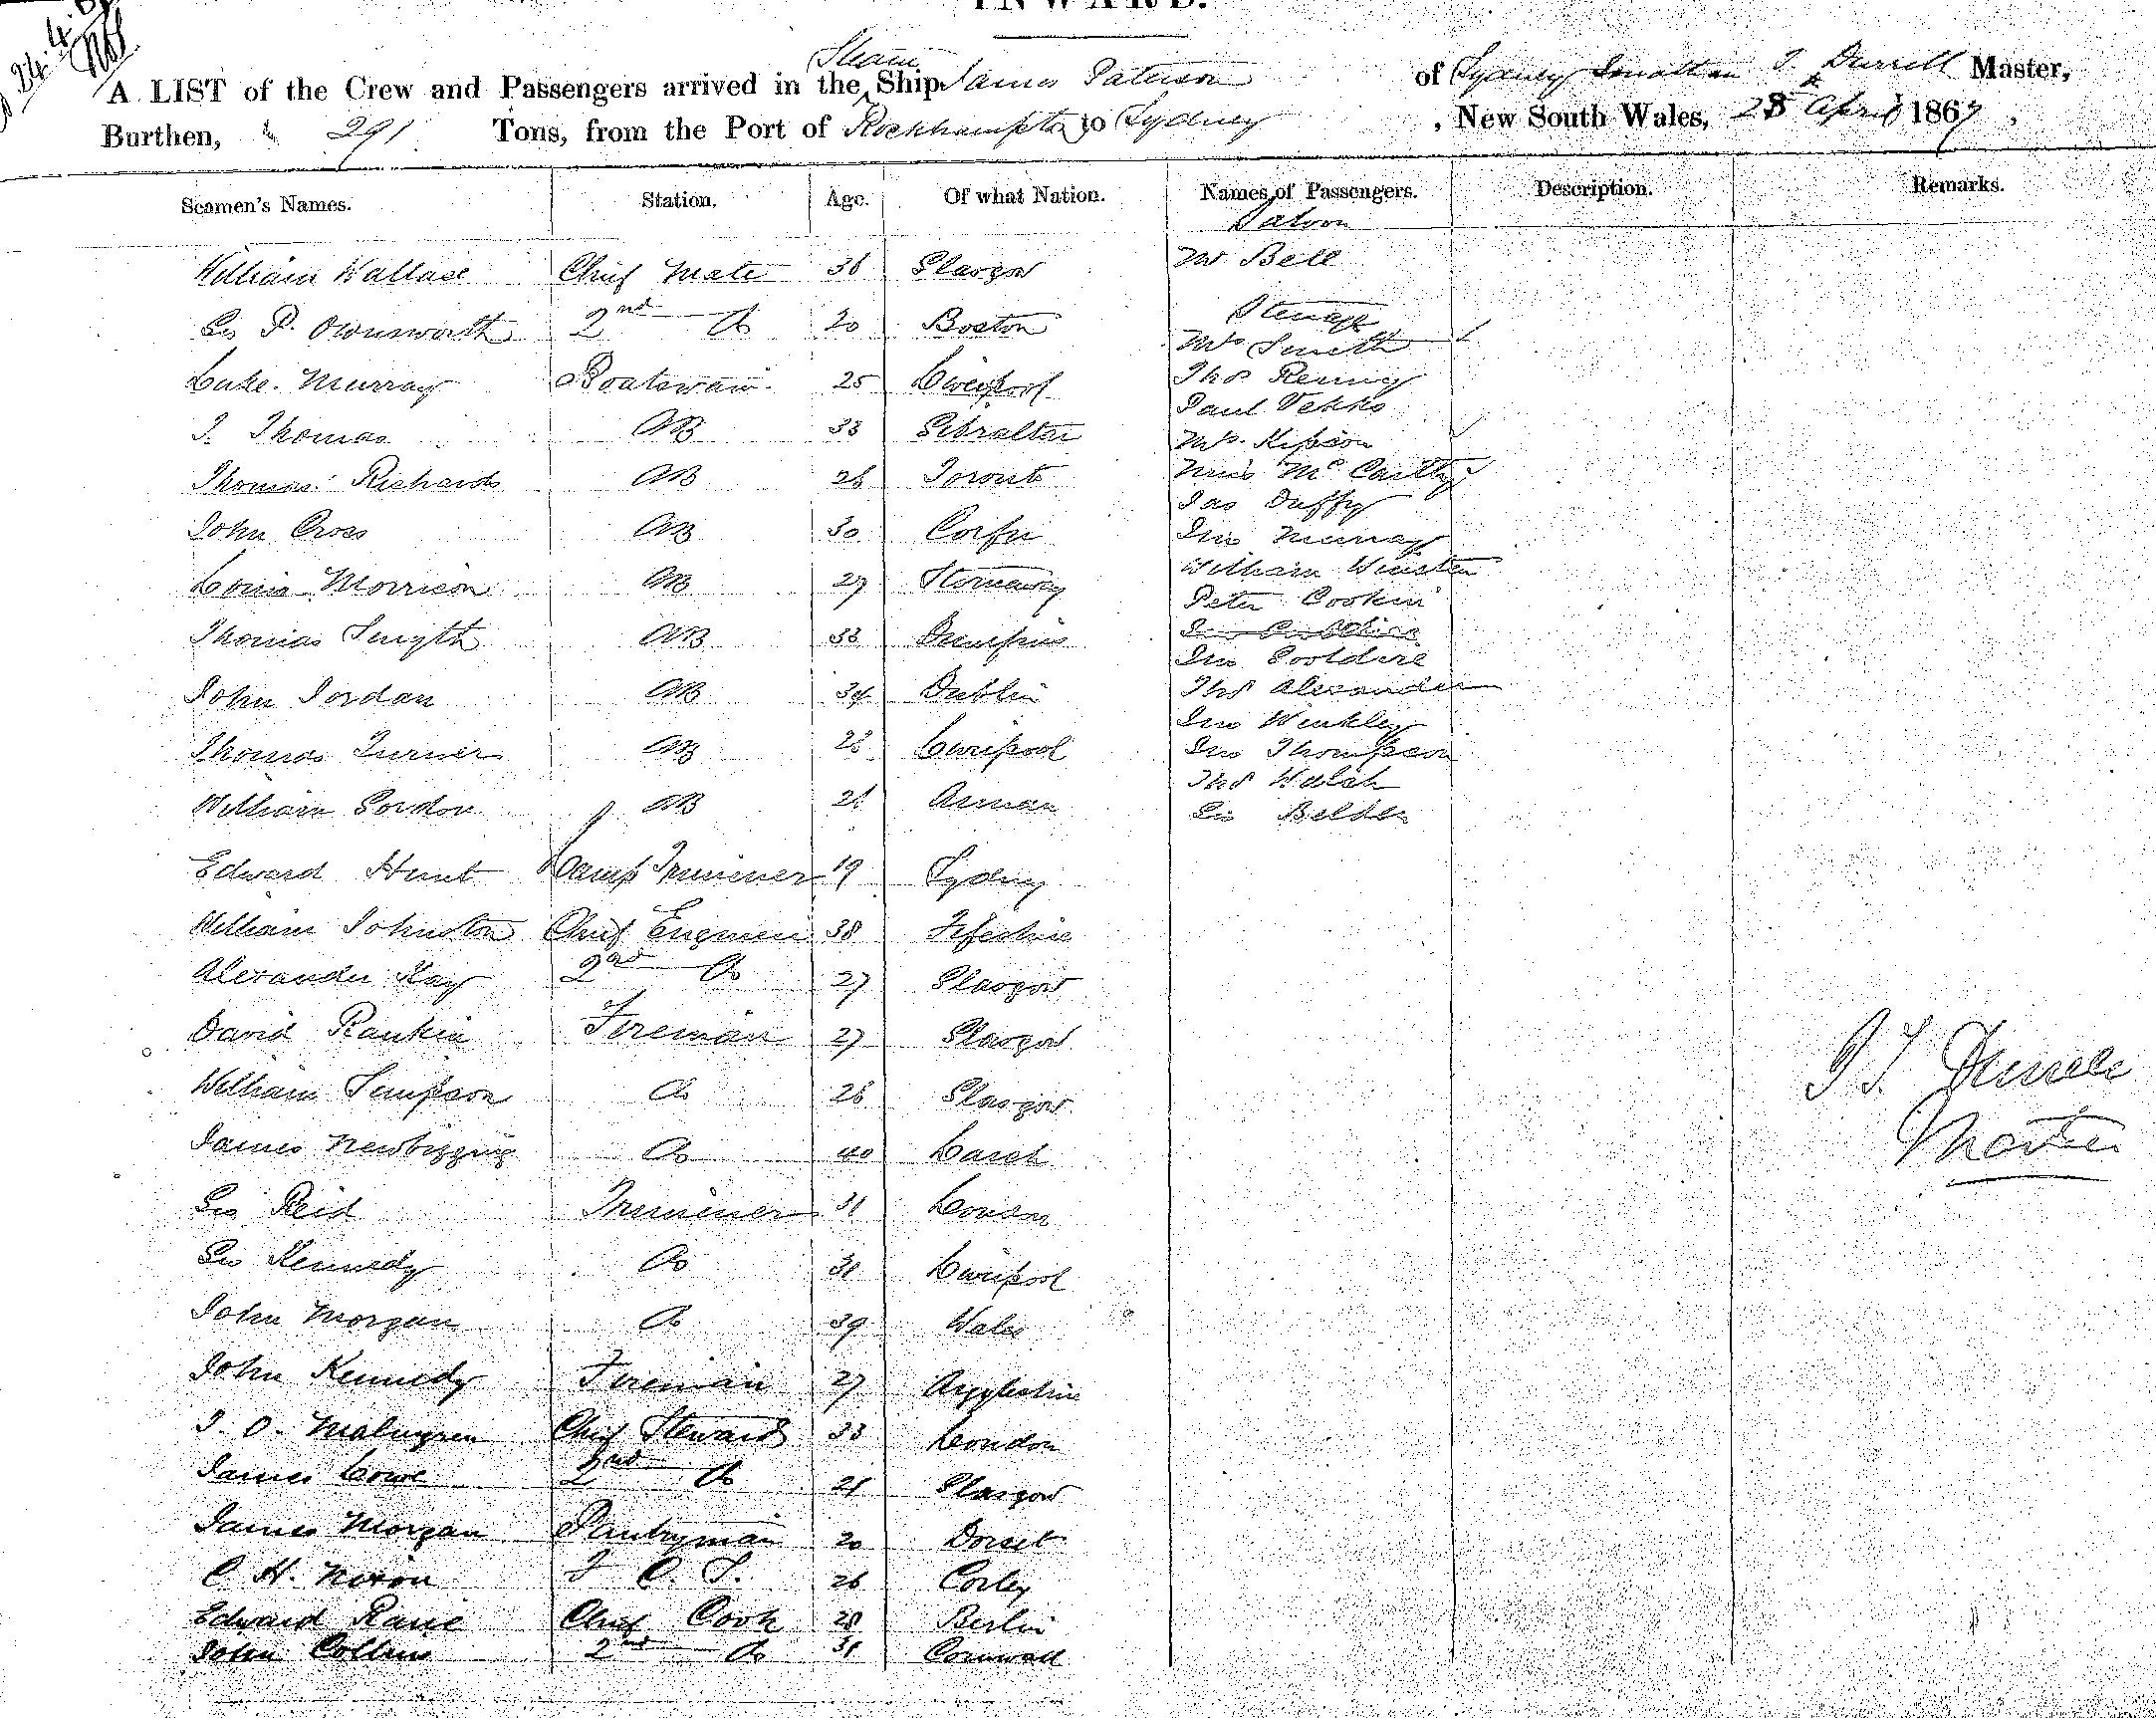 INWARD.
A LIST of the Crew and Passengers arrived in the Steam Ship James Paterson of Sydney Jonathan T. Durrell Master,
Burthen, 291 Tons, from the Port of Rockhampton to Sydney, New South Wales, 23 April 1867,
Seamen's Names. Station. Age. Of what Nation. Names of Passengers. Description. Remarks.
Saloon
William Wallace Chief Mate 36 Glasgow Mr Bell
Geo P. Ownsworth 2nd Do 20 Boston Steerage
Mrs Smith
Luke Murray Boatswain 25 Liverpool Thos Renny
Paul
J. Thomas AB 33 Gibraltar Mrs Kipson
Thomas Richards AB 26 Toronto Miss McCarthy
Jas Duffy
John Cross AB 30 Corfu Jno Murray
William Winsten
Louis Morrison AB 27 Stornaway Peter Cookin
Thomas Smyth AB 33 Dumfries
Jno Gooldire
John Jordan AB 34 Dublin Thos Alexander
Jno Winkley
Thomas Turner AB 28 Liverpool Jno Thompson
Thos Walsh
William Gordon AB 21 Annan Geo Belden
Edward Hunt Lamp Trimmer 19 Sydney
William Johnston Chief Engineer 38 Fifeshire
Alexander Kay 2nd Do 27 Glasgow
David Rankin Fireman 27 Glasgow
William Simpson Do 28 Glasgow
James Newbigging Do 40
Geo Reid Trimmer 31 London
Geo Kennedy Do 31 Liverpool
John Morgan Do 39 Wales
John Kennedy Fireman 27 Argyleshire
J. O. Malmgren Chief Steward 33 London
James Lowe 2nd Do 21 Glasgow
James Morgan Pantryman 20 Dorset
C H. Nixon F C. S. 26 Corley
Edward Rane Chief Cook 28 Berlin
John Collins 2nd Do 31 Cornwall
J T. Durrell
Master